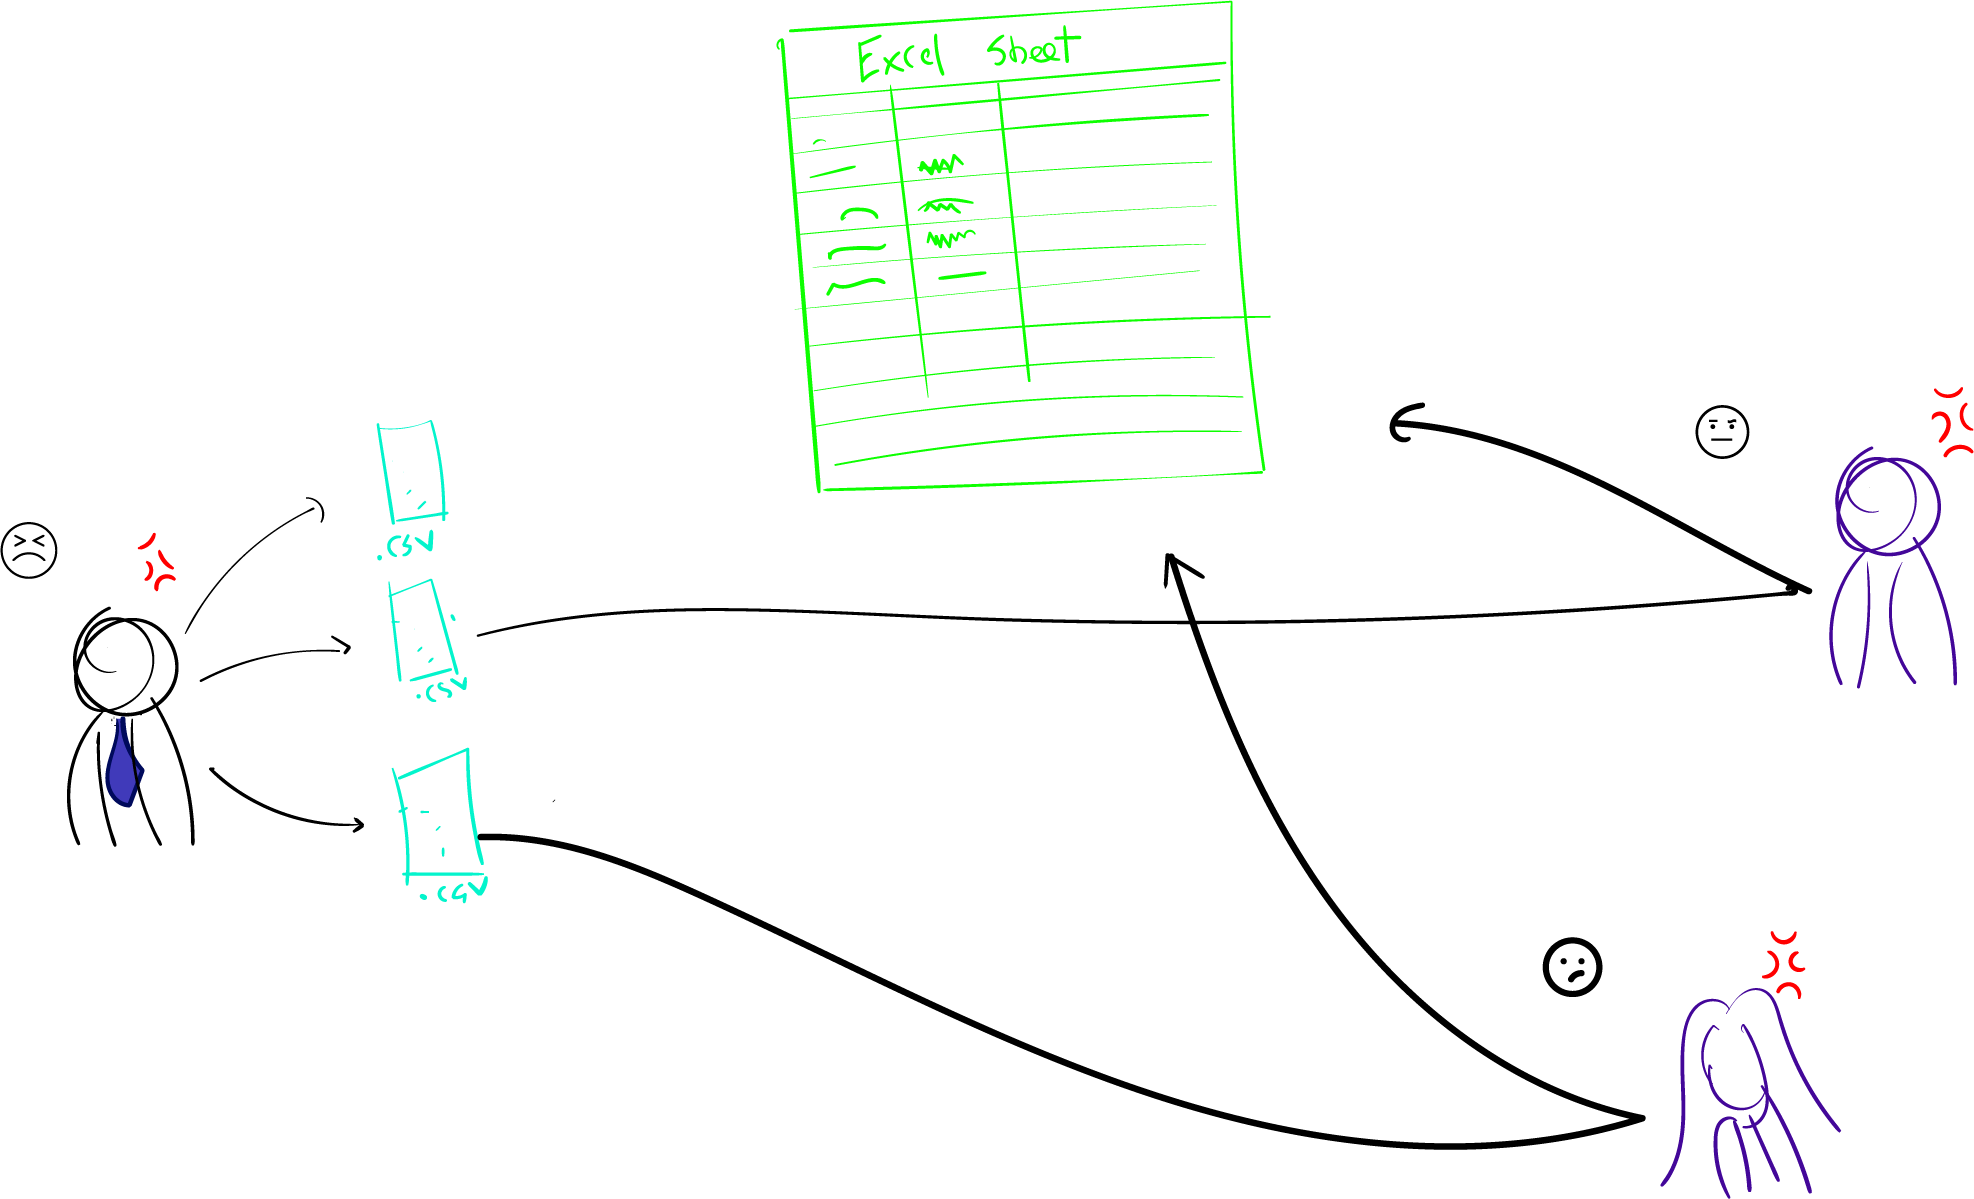 Excel Sheet
.CSV
.CSV
.CSV